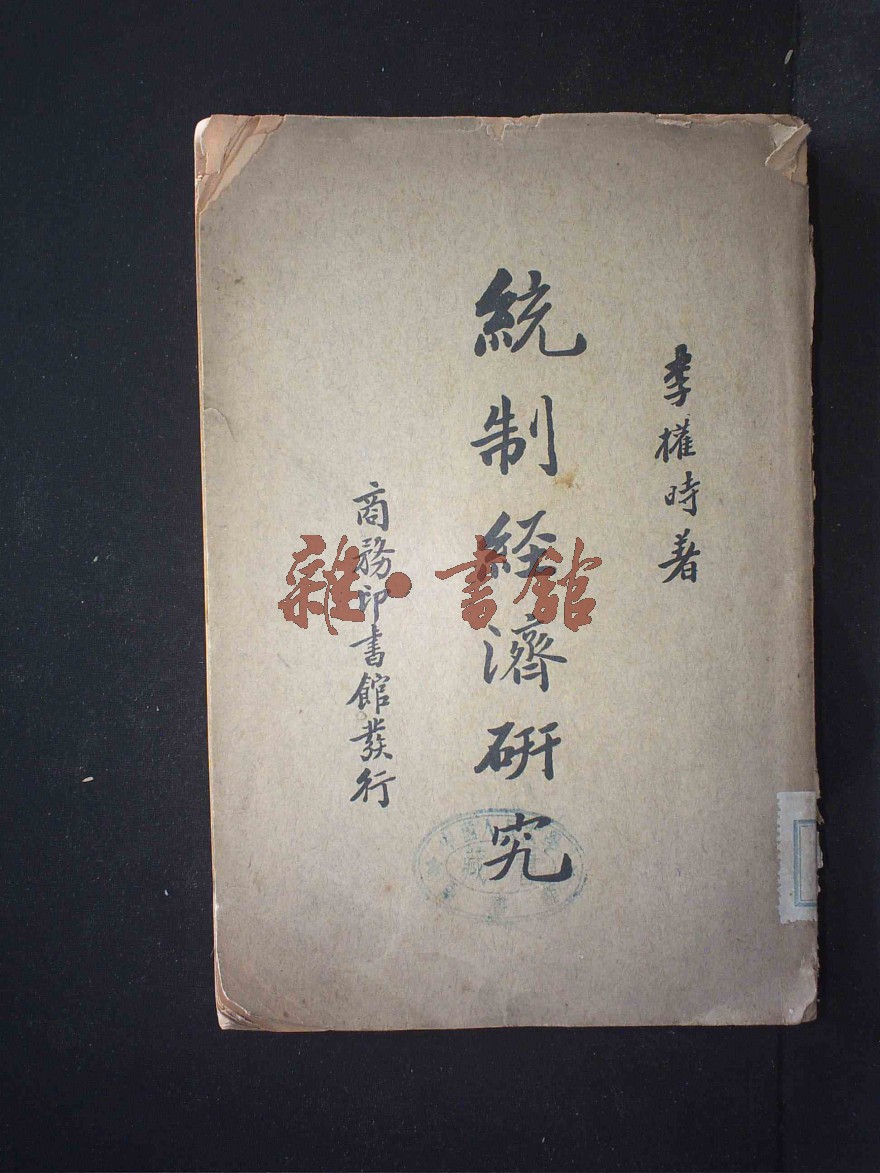 李權時著
統制經濟研究
商務印書館發行
雜·書館